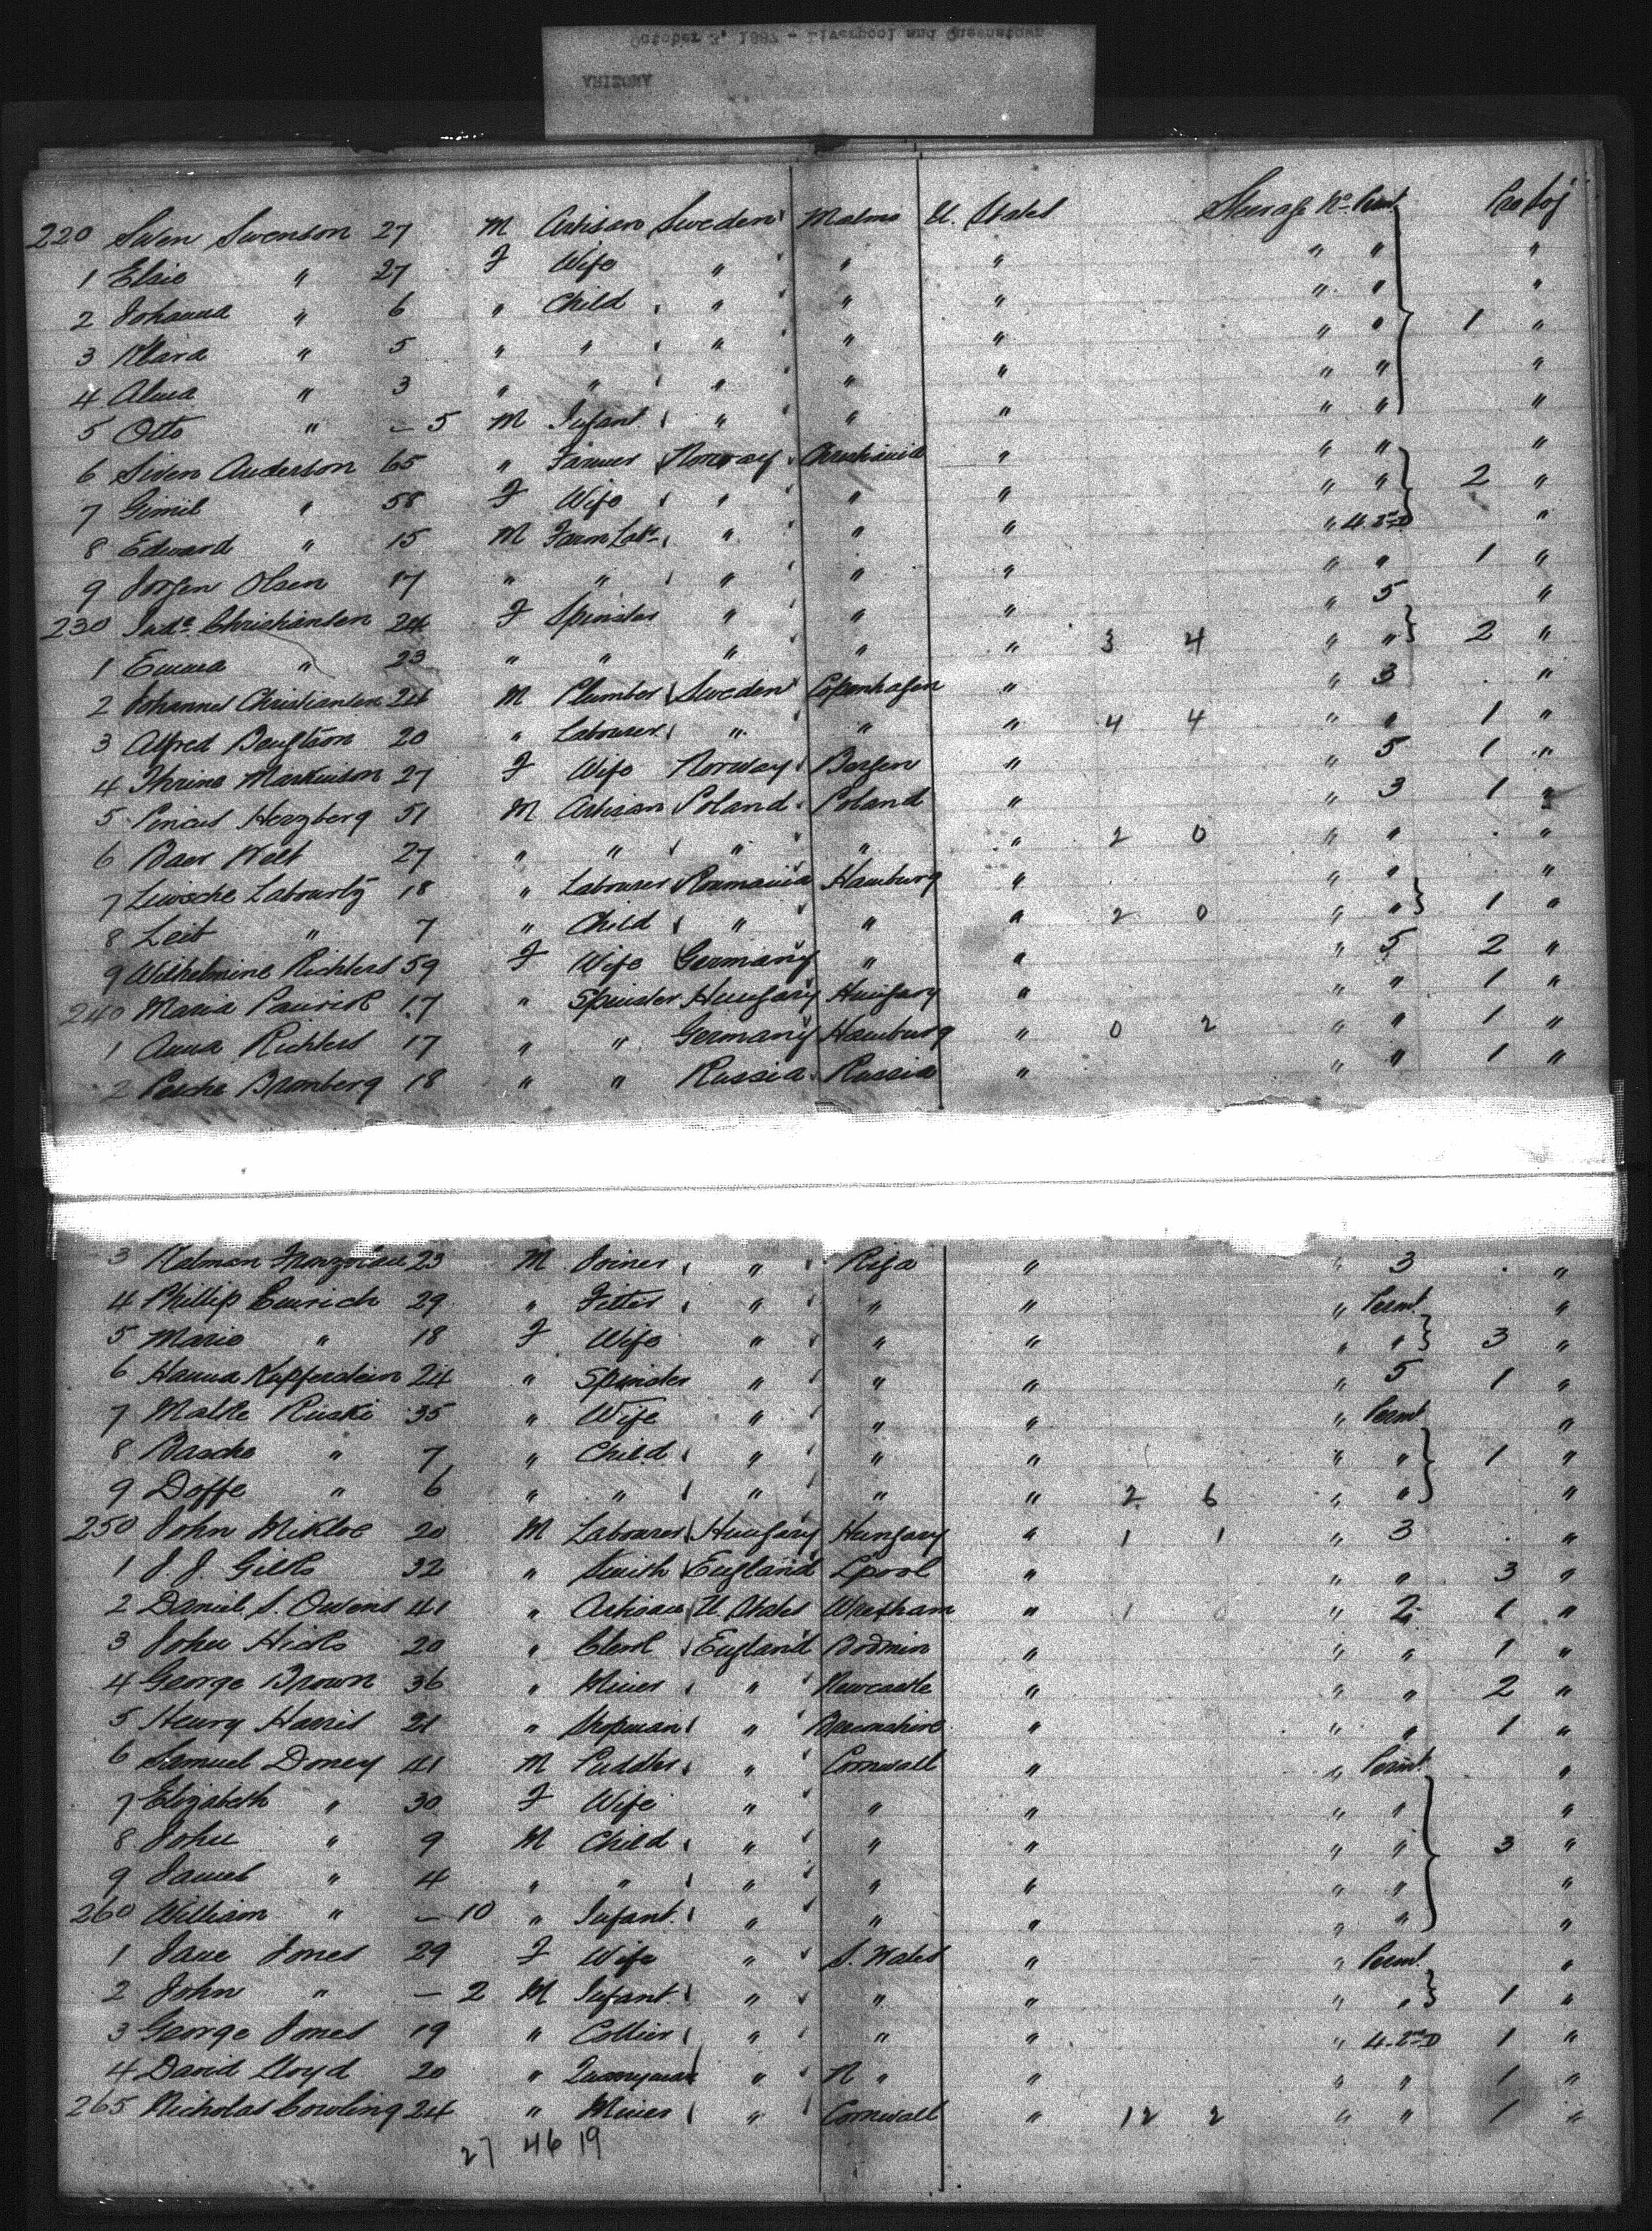 October 3, 1887 - Liverpool and Queenstown
ARIZONA
220 Swen Swenson 27 M Artisan Sweden Malmo U. States Steerage No. Permt Passg
1 Elsie " 27 F Wife " " " " " "
2 Johanna " 6 " Child " " " " " "
3 Klara " 5 " " " " " " " 1 "
4 Alma " 3 " " " " " " " "
5 Otto " - 5 M Infant " " " " " "
6 Swen Anderson 65 " Farmer Norway Christiania " " " "
7 " 58 F Wife " " " " " 2 "
8 Edward " 15 M Farm Labr " " " " 4. "
9 Jorgen Olsen 17 " " " " " " " 1 "
230 Christiansen 24 F Spinster " " " " 5 "
1 Emma " 23 " " " " " 3 4 " " 2 "
2 Johannes Christiansen 24 M Plumber Sweden Copenhagen " " 3 . "
3 Alfred Bengtson 20 " Labourer " " " 4 4 " " 1 "
4 27 F Wife Norway Bergen " 5 1 "
5 Pincus Herzberg 51 M Artisan Poland Poland " " 3 1 "
6 Baer Welt 27 " " " " " 2 0 " " . "
7 18 " Labourer Roumania Hamburg " " " "
8 Leib " 7 " Child " " " 2 0 " " 1 "
9 Wilhelmine Richters 59 F Wife Germany " " " 5 2 "
240 Maria 17 " Spinster Hungary Hungary " " " 1 "
1 Anna Richters 17 " " Germany Hamburg " 0 2 " " 1 "
2 Pesche Bromberg 18 " " Russia Russia " " " 1 "
3 Kalman 23 M Joiner " Riga " " 3 . "
4 Phillip Emrich 29 " Fitter " " " " Permt "
5 Marie " 18 F Wife " " " " " 3 "
6 Hanna Kupferstein 24 " Spinster " " " " 5 1 "
7 Malke Ruski 35 " Wife " " " " Permt "
8 Basche " 7 " Child " " " " " 1 "
9 Doffe " 6 " " " " " 2 6 " " "
250 John Mikloe 20 M Labourer Hungary Hungary " 1 1 " 3 . "
1 J J Gilks 32 " Smith England Lpool " " " 3 "
2 Daniel S. Owens 41 " Artisan U. States Wrexham " 1 0 " 2 1 "
3 John Hicks 20 " Clerk England Bodmin " " " 1 "
4 George Brown 36 " Miner " Newcastle " " " 2 "
5 Henry Harris 21 " Shopman " Devonshire " " " 1 "
6 Samuel Doney 41 M Puddler " Cornwall " " Permt "
7 Elizabeth " 30 F Wife " " " " " "
8 John " 9 M Child " " " " " 3 "
9 James " 4 " " " " " " " "
260 William " - 10 " Infant " " " " " "
1 Jane Jones 29 F Wife " S. Wales " " Permt "
2 John " - 2 M Infant " " " " " 1 "
3 George Jones 19 " Collier " " " " 4. 1 "
4 David Lloyd 20 " Quarryman " N " " " " 1 "
265 Nicholas Cowling 24 " Miner " Cornwall " 12 2 " " 1 "
27 46 19